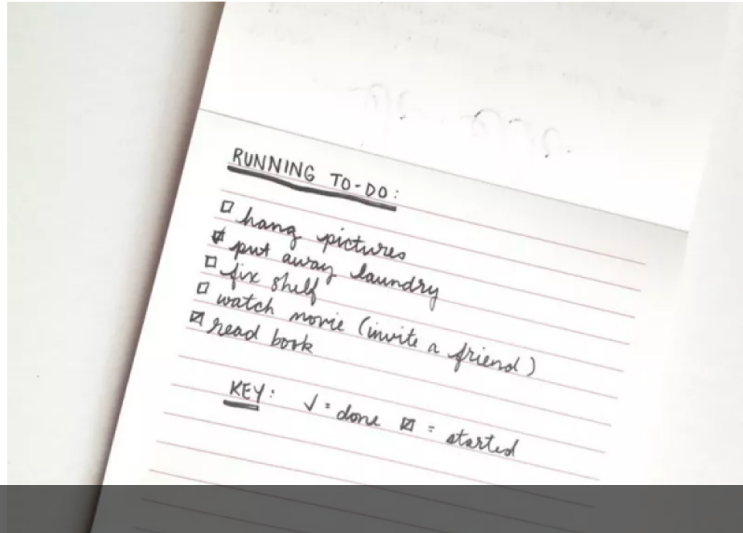 RUNNING TO-DO:
☐ hang pictures
☑ put away laundry
☐ fix shelf
☐ watch movie (invite a friend)
⍁ read book
KEY: √ = done ⍁ = started